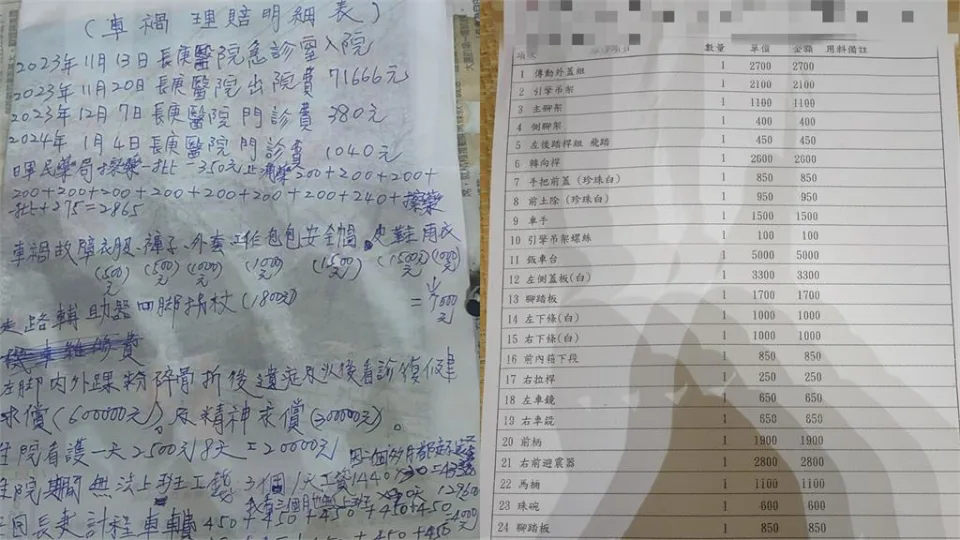 (車禍理賠明細表)
2023年11月13日長庚醫院急診室入院
2023年11月20日長庚醫院出院費 71666元
2023年12月7日長庚醫院門診費 380元
2024年1月4日長庚醫院門診費 1040元
200+200+200+
200+200+200+200+200+200+200+240+擦藥
+275=2865
車禍故障衣服、褲子、外套工作包包安全帽、皮鞋雨衣
(500元) (500元) (1000元) (1000元) (1500元) (1500元) (1000元)
=7000元
走路輔助器四脚拐杖(1800元)
左脚內外踝粉碎骨折後遺症及以後看診復健
求償(600000元)及精神求償(300000元)。
住院看護一天2500元8天=20000元
院期間無法上班工錢 3個 1天工資1440
回長庚計程車車輛450+450+450+450+450
項次 數量 單價 金額 用料備註
1 傳動外蓋組 1 2700 2700
2 引擎吊架 1 2100 2100
3 主腳架 1 1100 1100
4 側腳架 1 400 400
5 左後踏桿組 飛踏 1 450 450
6 轉向桿 1 2600 2600
7 手把前蓋(珍珠白) 1 850 850
8 前土除(珍珠白) 1 950 950
9 車手 1 1500 1500
10 引擎吊架螺絲 1 100 100
11 鈑車台 1 5000 5000
12 左側蓋板(白) 1 3300 3300
13 腳踏板 1 1700 1700
14 左下條(白) 1 1000 1000
15 右下條(白) 1 1000 1000
16 前內箱下段 1 850 850
17 右拉桿 1 250 250
18 左車鏡 1 650 650
19 右車鏡 1 650 650
20 前柄 1 1900 1900
21 右前避震器 1 2800 2800
22 馬桶 1 1100 1100
23 珠碗 1 600 600
24 腳踏板 1 850 850